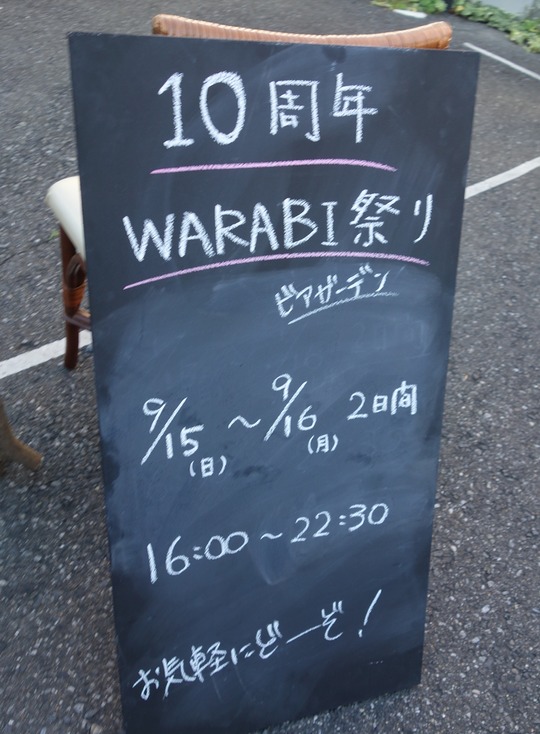 10周年
WARABI祭り
ビアガーデン
9/15(日)～9/16(月) 2日間
16:00～22:30
お気軽にど—ぞ!